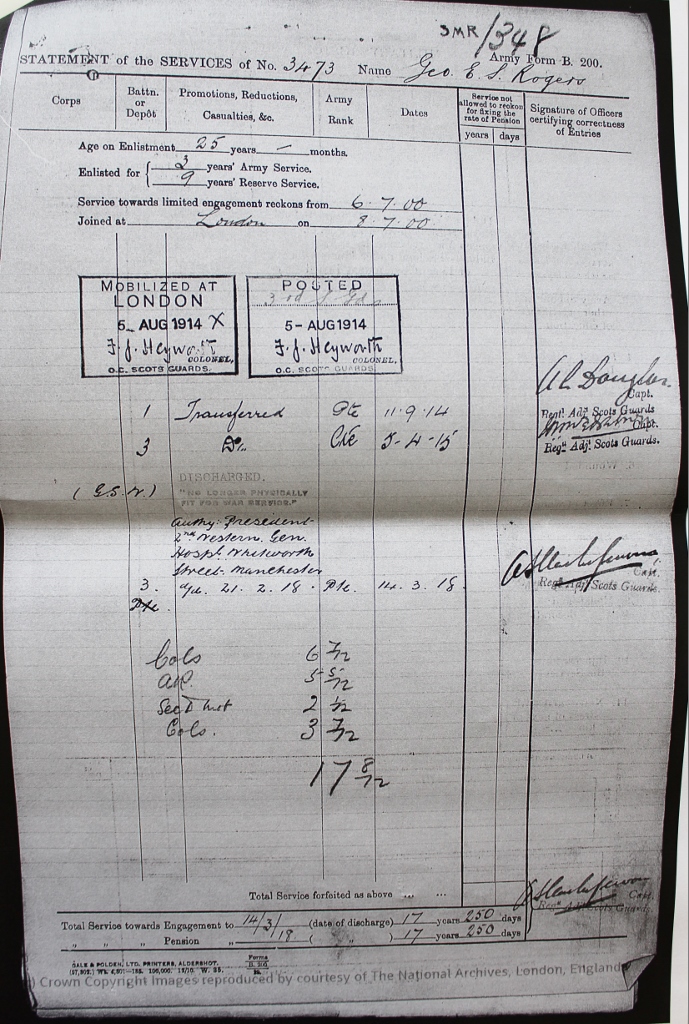 SMR/1348
STATEMENT of the SERVICES of No. 3473 Name Geo. E. S. Rogers
Army Form B. 200.
Corps
Battn. or Depôt
Promotions, Reductions, Casualties, &c.
Army Rank
Dates
Service not allowed to reckon for fixing the rate of Pension
years days
Signature of Officers certifying correctness of Entries
Age on Enlistment 25 years - months.
Enlisted for { 3 years' Army Service.
9 years' Reserve Service.
Service towards limited engagement reckons from 6.7.00
Joined at London on 8.7.00
MOBILIZED AT
LONDON
5- AUG 1914 X
F. J. Heyworth
COLONEL,
O.C. SCOTS GUARDS.
POSTED
3rd S. Gds
5- AUG 1914
F. J. Heyworth
COLONEL,
O.C. SCOTS GUARDS.
1 Transferred Pte 11.9.14
Capt.
Regtl. Adjt. Scots Guards
3 Do. Pte 5-4-15
Capt.
Regtl. Adjt. Scots Guards.
DISCHARGED.
(G.S.W.) "NO LONGER PHYSICALLY
FIT FOR WAR SERVICE."
Authy: President
2nd Western Gen.
Hospl. Whitworth
Street Manchester
3. dd. 21.2.18. Pte. 14.3.18
Pte.
Capt.
Regtl. Adjt. Scots Guards.
Cols 6 7/12
5 5/12
2 1/12
Cols. 3 7/12
17 8/12
Total Service forfeited as above ... ...
Capt.
Regtl. Adjt. Scots Guards.
Total Service towards Engagement to 14/3/18 (date of discharge) 17 years 250 days
" " " Pension " ( " ) 17 years 250 days
GALE & POLDEN, LTD. PRINTERS, ALDERSHOT.
Forms
B. 200
Crown Copyright Images reproduced by courtesy of The National Archives, London, England